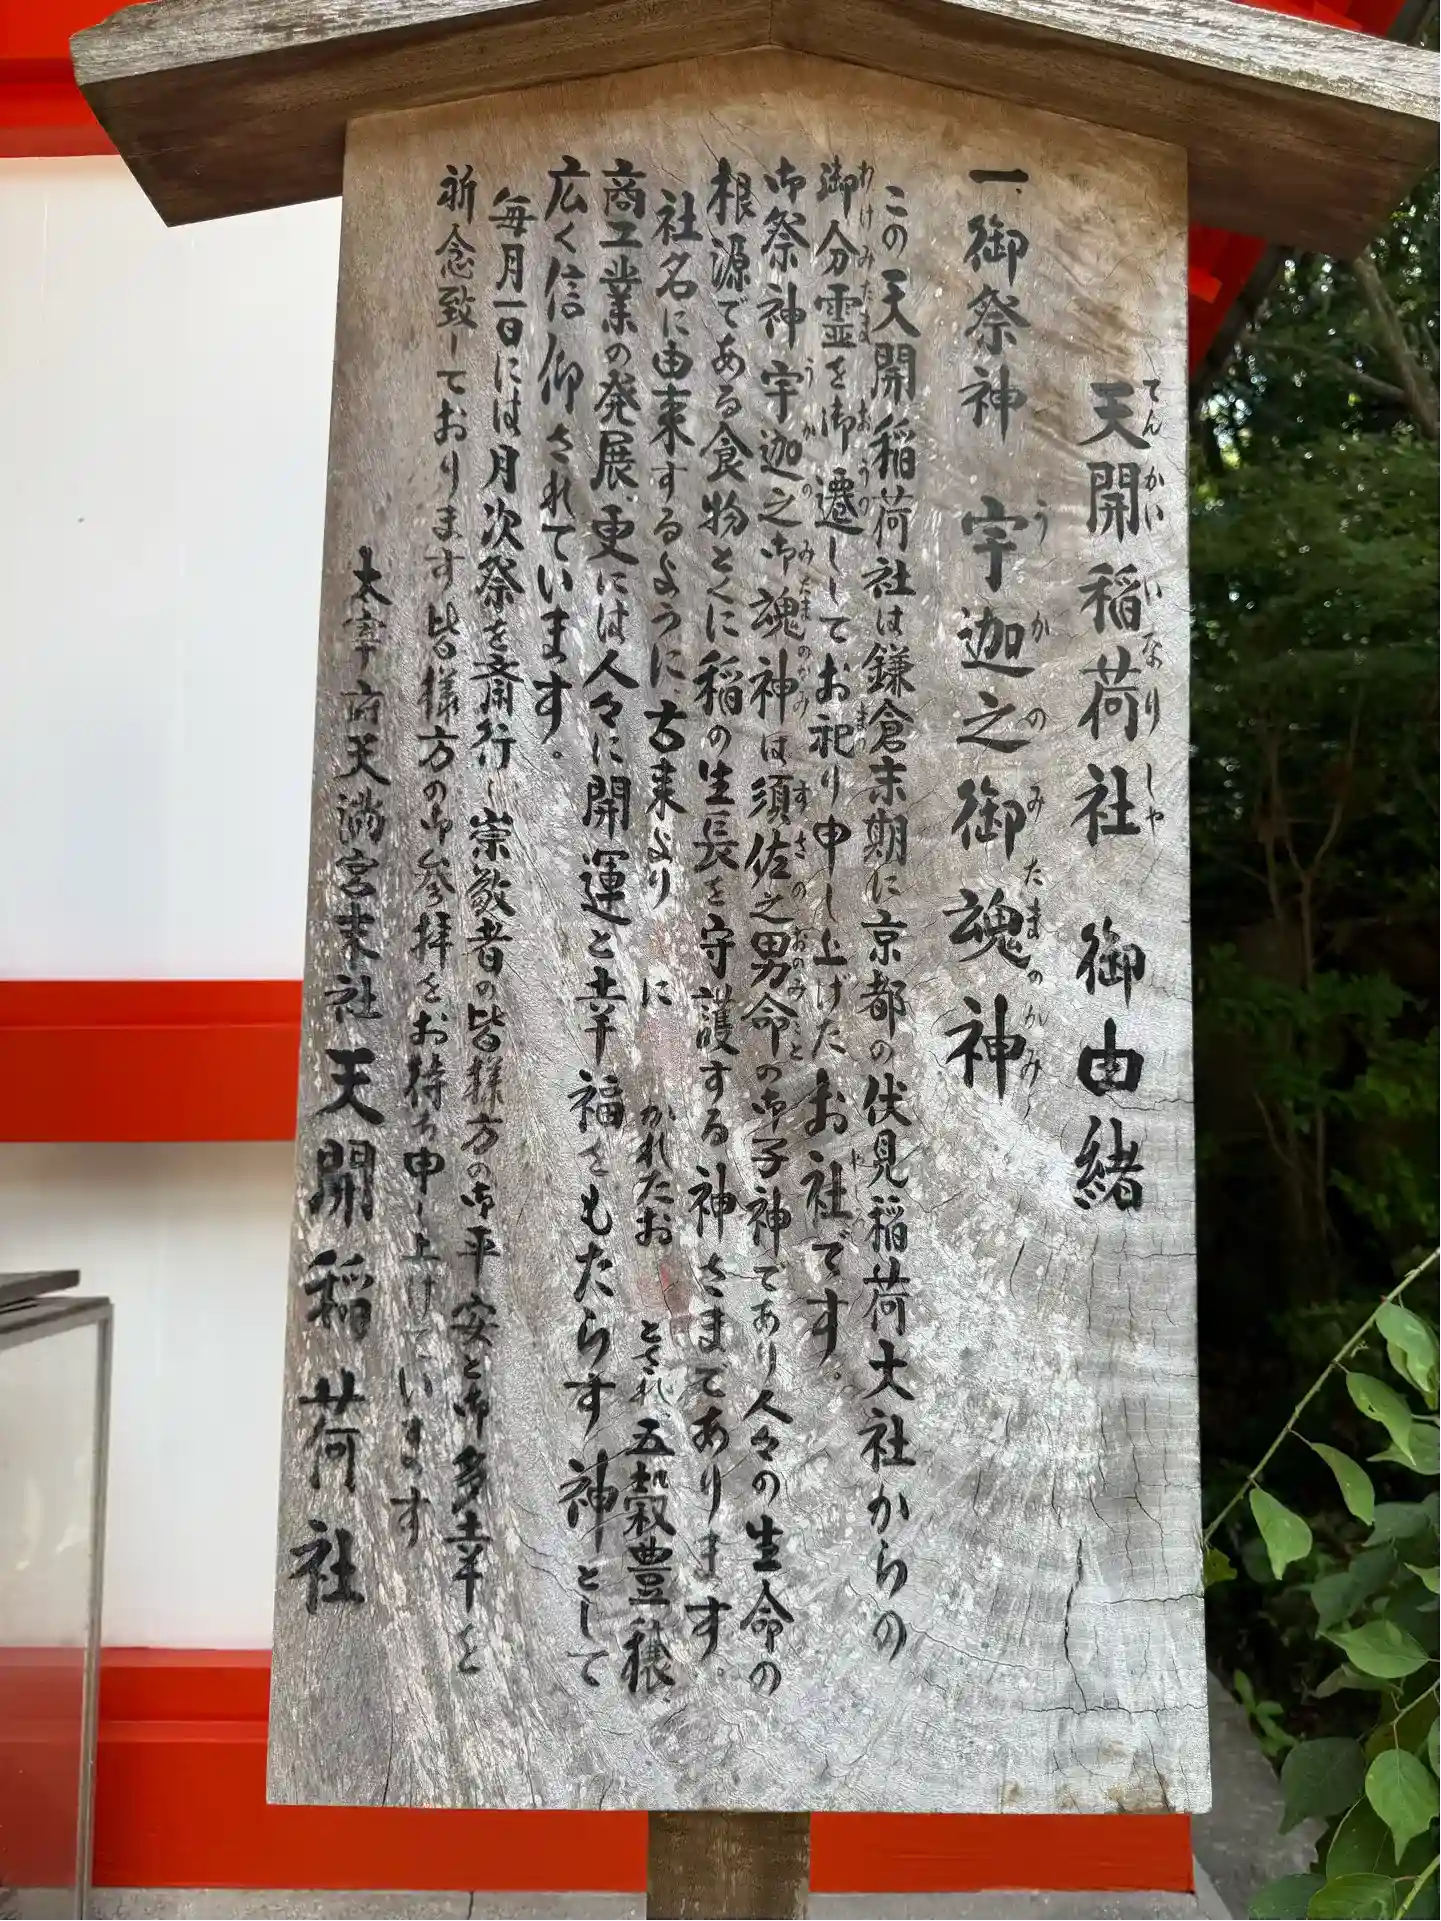 天開稲荷社 御由緒
てんかいいなりしゃ
一、御祭神 宇迦之御魂神
うかのみたまのかみ
この天開稲荷社は鎌倉末期に京都の伏見稲荷大社からの
御分霊を御遷ししてお祀り申し上げたお社です。
わけみたま おうつ まつ やしろ
御祭神宇迦之御魂神は須佐之男命の御子神であり人々の生命の
うかのみたまのかみ すさのおのみこと
根源である食物とくに稲の生長を守護する神さまであります。
社名に由来するように、古来より に かれたお とされ、五穀豊穣、
商工業の発展、更には人々に開運と幸福をもたらす神として
広く信仰されています。
毎月一日には月次祭を斎行し崇敬者の皆様方の御平安と御多幸を
祈念致しております 皆様方の御参拝をお待ち申し上げています
太宰府天満宮末社 天開稲荷社